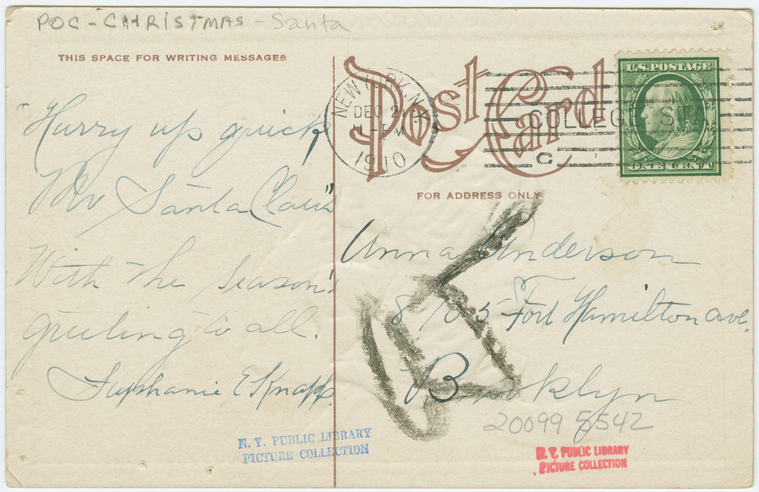 POC - CHRISTMAS - Santa
THIS SPACE FOR WRITING MESSAGES
"Hurry up quick
Mr Santa Claus"
With the Season's
greeting to all.
Stephanie E Knapp.
N. Y. PUBLIC LIBRARY
PICTURE COLLECTION
Post Card
NEW YORK, N.Y.
DEC
1910
COLLEGE STA.
C
U.S. POSTAGE
ONE CENT
FOR ADDRESS ONLY
Anna Anderson
Fort Hamilton ave.
Brooklyn
20099 5542
N. Y. PUBLIC LIBRARY
PICTURE COLLECTION